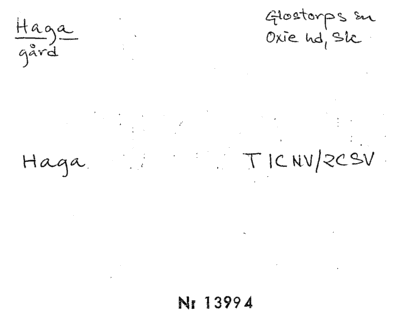 Haga
gård
Glostorps sn
Oxie hd, Skc
Haga
T 1CNV/2CSV
Nr 13994